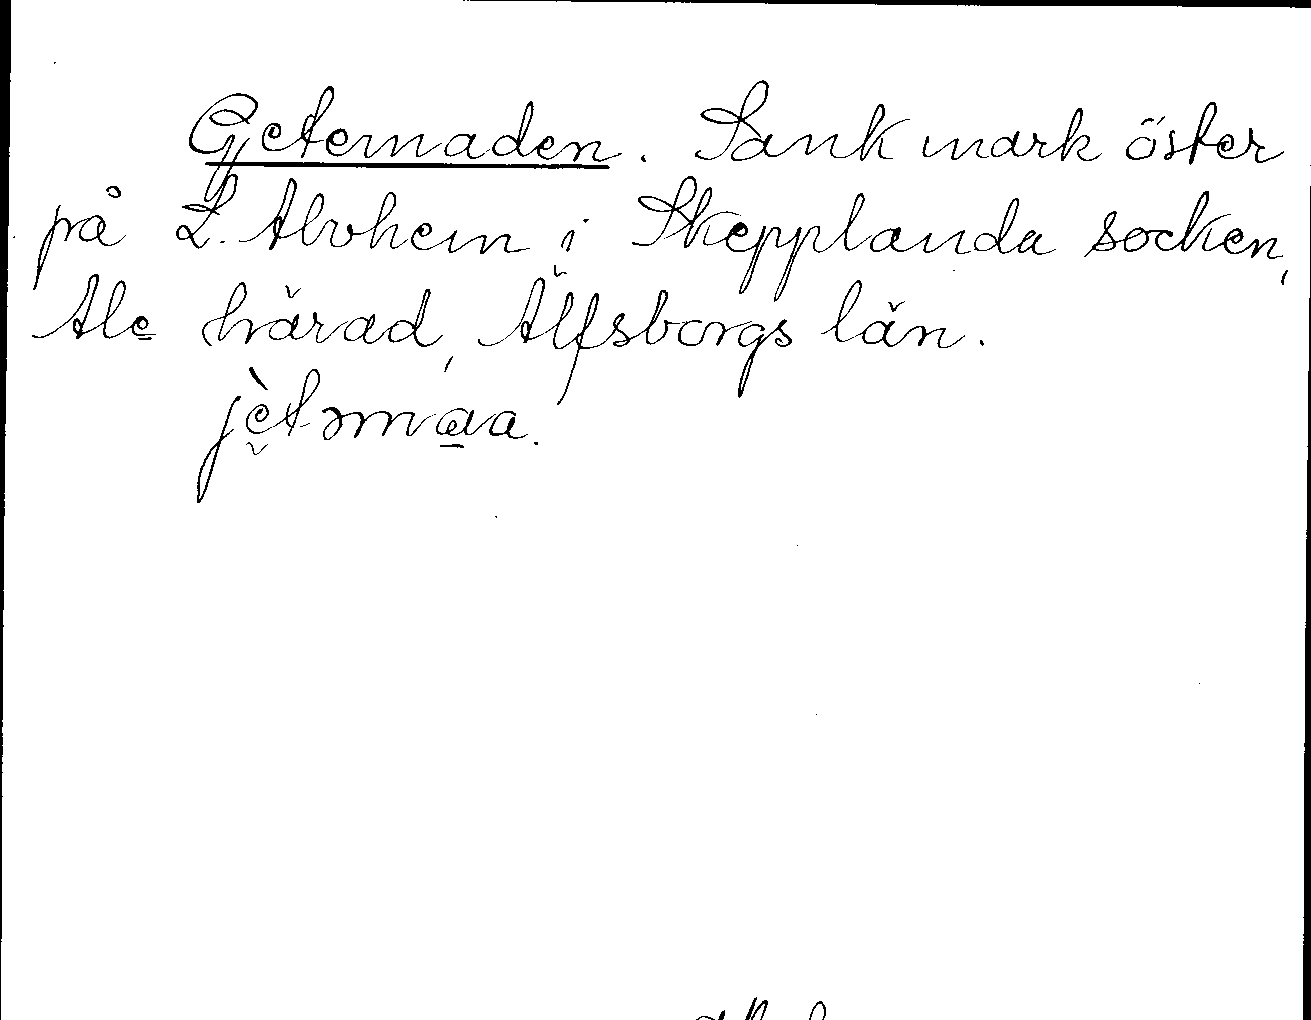 Gjetemaden. Sank mark öster
på L. Alvhem i Skepplanda socken,
Ale härad, Älfsborgs län.
jètəmaa.